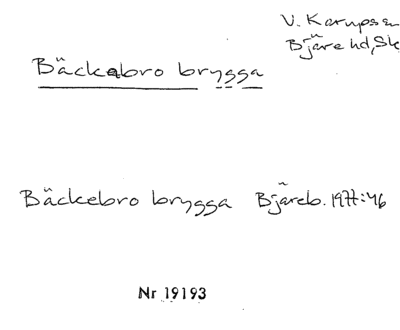 V. Karupssn
Bjäre hd, Sk
Bäckabro brygga
Bäckebro brygga Bjäreb. 1977:46
Nr 19193